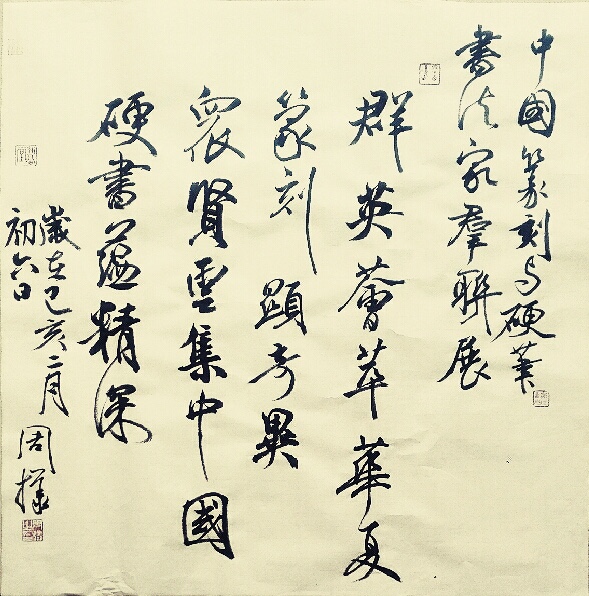 中國篆刻与硬筆
書法家群聯展
群英薈萃華夏
篆刻顯奇異
眾賢雲集中國
硬書蕴精深
歲在己亥二月
初六日
周樣